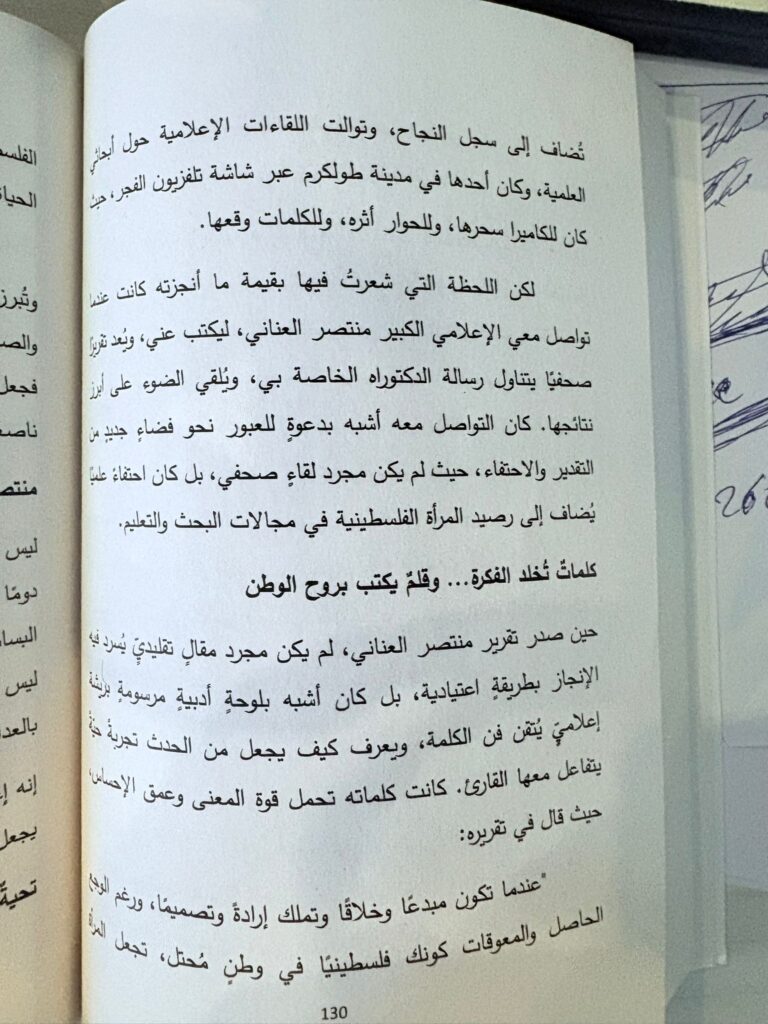 تُضاف إلى سجل النجاح، وتوالت اللقاءات الإعلامية حول أبحاثي
العلمية، وكان أحدها في مدينة طولكرم عبر شاشة تلفزيون الفجر، حيث
كان للكاميرا سحرها، وللحوار أثره، وللكلمات وقعها.
لكن اللحظة التي شعرتُ فيها بقيمة ما أنجزته كانت عندما
تواصل معي الإعلامي الكبير منتصر العناني، ليكتب عني، ويُعد تقريرًا
صحفيًا يتناول رسالة الدكتوراه الخاصة بي، ويُلقي الضوء على أبرز
نتائجها. كان التواصل معه أشبه بدعوةٍ للعبور نحو فضاءٍ جديدٍ من
التقدير والاحتفاء، حيث لم يكن مجرد لقاءٍ صحفي، بل كان احتفاءً علميًا
يُضاف إلى رصيد المرأة الفلسطينية في مجالات البحث والتعليم.
كلماتٌ تُخلد الفكرة... وقلمٌ يكتب بروح الوطن
حين صدر تقرير منتصر العناني، لم يكن مجرد مقالٍ تقليديٍّ يُسرد فيه
الإنجاز بطريقةٍ اعتيادية، بل كان أشبه بلوحةٍ أدبيةٍ مرسومةٍ بريشة
إعلاميٍّ يُتقن فن الكلمة، ويعرف كيف يجعل من الحدث تجربةً حيّةً
يتفاعل معها القارئ. كانت كلماته تحمل قوة المعنى وعمق الإحساس،
حيث قال في تقريره:
"عندما تكون مبدعًا وخلاقًا وتملك إرادةً وتصميمًا، ورغم الوجع
الحاصل والمعوقات كونك فلسطينيًا في وطنٍ مُحتل، تجعل المرأة
130
الحياة
ليس
دومًا
ليس
يجعل